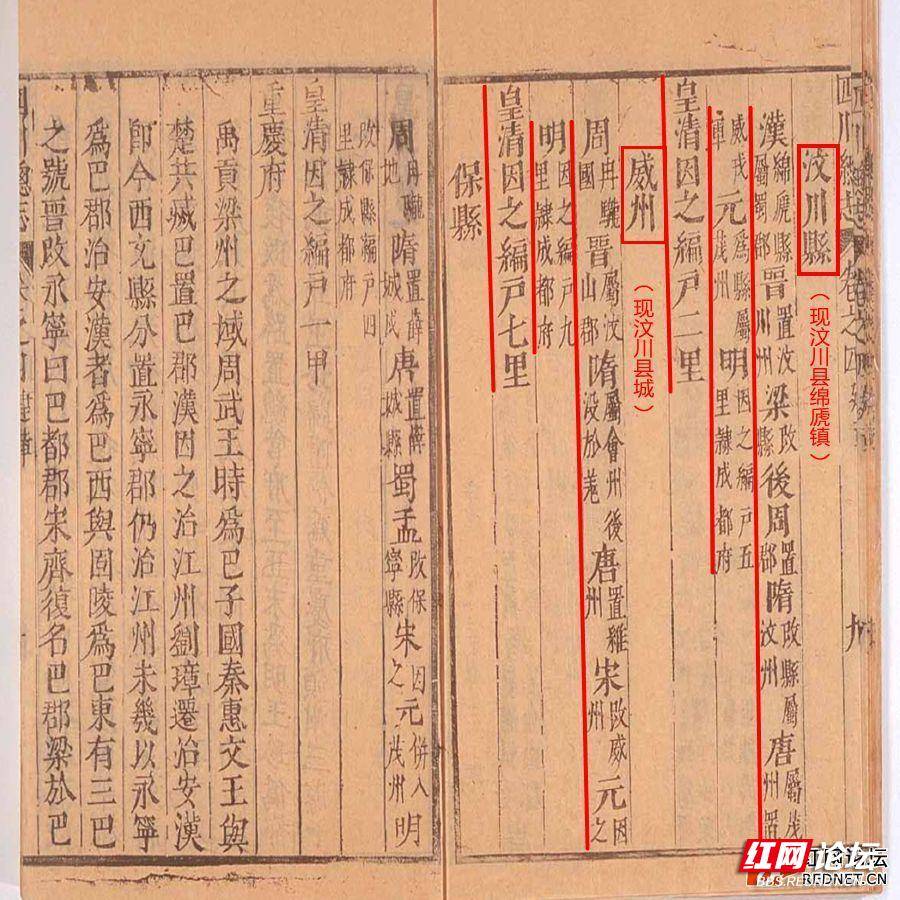 四川總志 卷之四 九
汶川縣
（现汶川县绵虒镇）
漢綿虒縣屬蜀郡晉置汶川州梁改縣後周置郡隋改縣屬汶州唐屬茂州置
威戎軍元改爲縣屬茂州明因之編戶五里隸成都府
皇清因之編戶二里
威州
（现汶川县城）
周冉駹國晉屬汶山郡隋屬會州後没於羌唐置維州宋改威州元因之
明因之編戶九里隸成都府
皇清因之編戶七里
保縣
周冉駹地隋置薛城戍唐置薛城縣蜀孟改保寧縣宋因之元併入茂州明
改保縣編戶四里隸成都府
皇清因之編戶一甲
重慶府
禹貢梁州之域周武王時爲巴子國秦惠文王與
楚共滅巴置巴郡漢因之治江州劉璋遷治安漢
卽今西充縣分置永寧郡仍治江州未幾以永寧
爲巴郡治安漢者爲巴西與固陵爲巴東有三巴
之號晉改永寧曰巴都郡宋齊復名巴郡梁於巴
四川總志
红网论坛
REDNET.CN